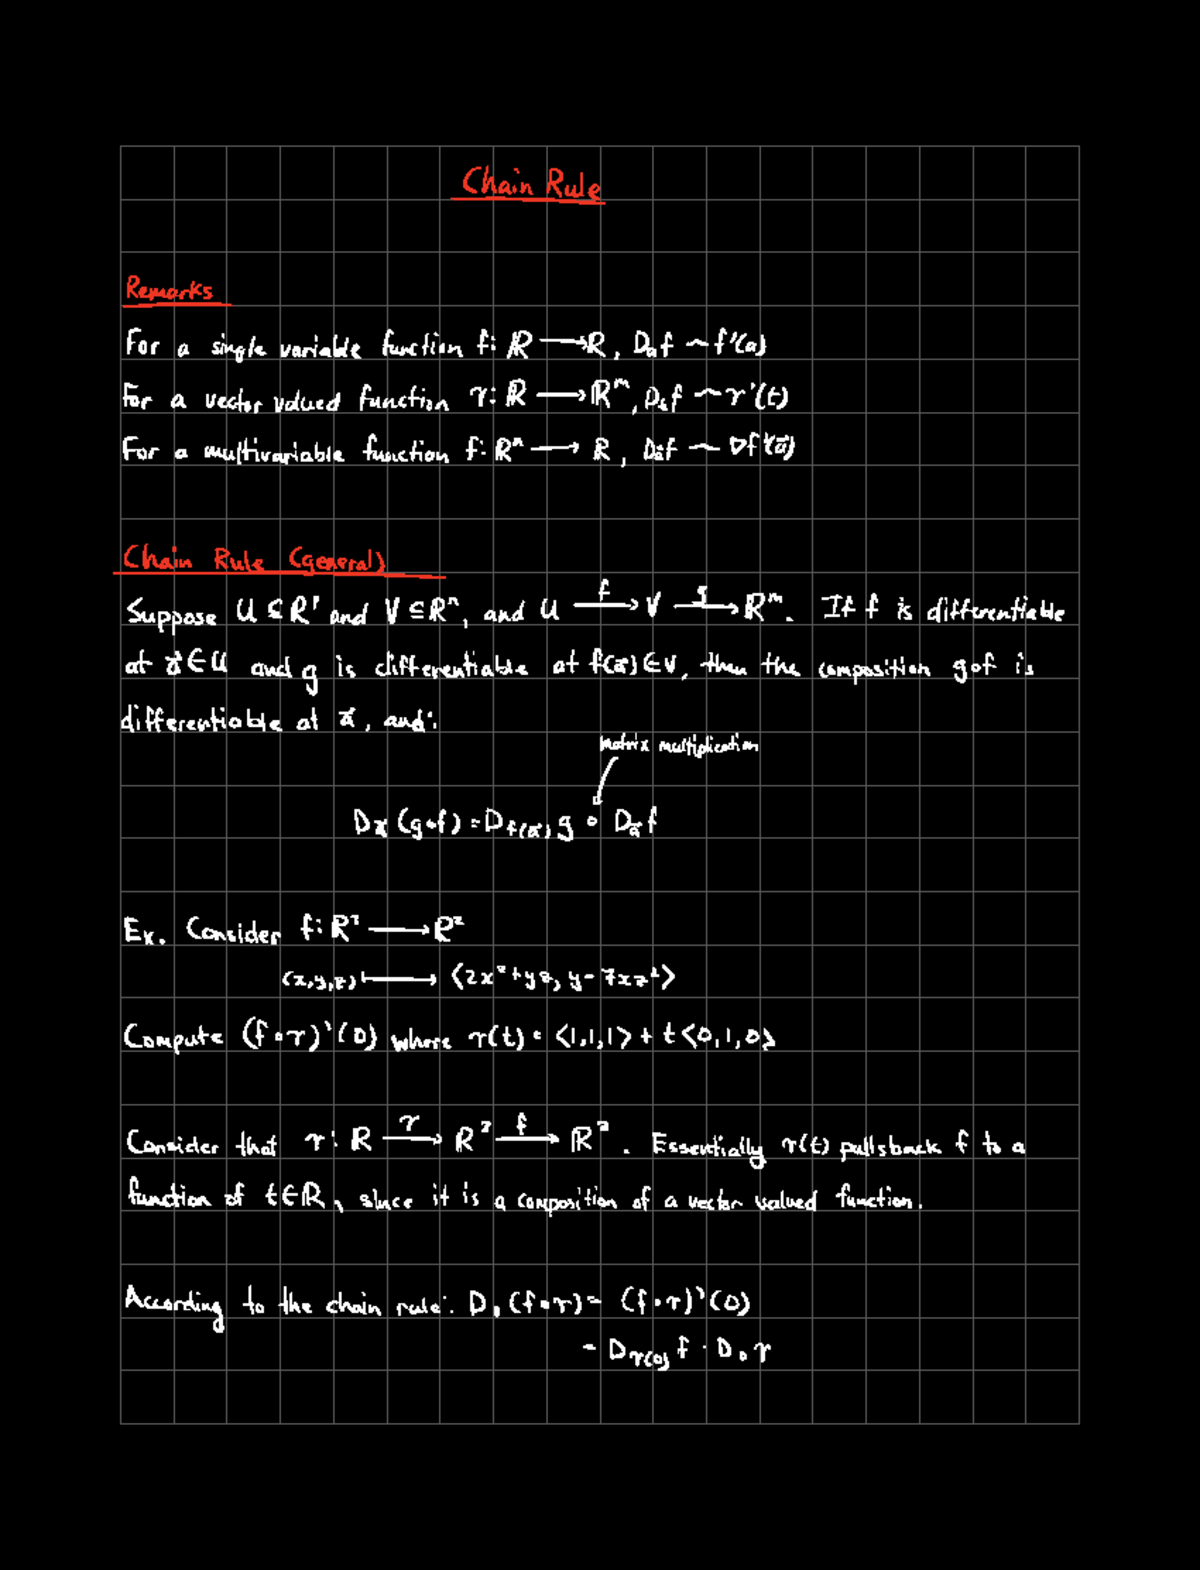 Chain Rule
Remarks
For a single variable function f: ℝ → ℝ, Dₐf ~ f'(a)
For a vector valued function r: ℝ → ℝᵐ, Dₜf ~ r'(t)
For a multivariable function f: ℝⁿ → ℝ, Dₐf ~ ∇f(a⃗)
Chain Rule (general)
Suppose U ⊆ ℝ and V ⊆ ℝⁿ, and U –f→ V –g→ ℝᵐ. If f is differentiable
at a⃗ ∈ U and g is differentiable at f(a⃗) ∈ V, then the composition g∘f is
differentiable at a⃗, and:
matrix multiplication
D (g∘f) = D f(a⃗) g ∘ D a⃗ f
Ex. Consider f: ℝ³ → ℝ²
(x,y,z) ↦ ⟨2x²+yz, y-7xz²⟩
Compute (f∘r)'(0) where r(t) = ⟨1,1,1⟩ + t⟨0,1,0⟩
Consider that r: ℝ –r→ ℝ³ –f→ ℝ². Essentially r(t) pullsback f to a
function of t∈ℝ, since it is a composition of a vector valued function.
According to the chain rule: D₀(f∘r) = (f∘r)'(0)
= D r(0) f · D₀r